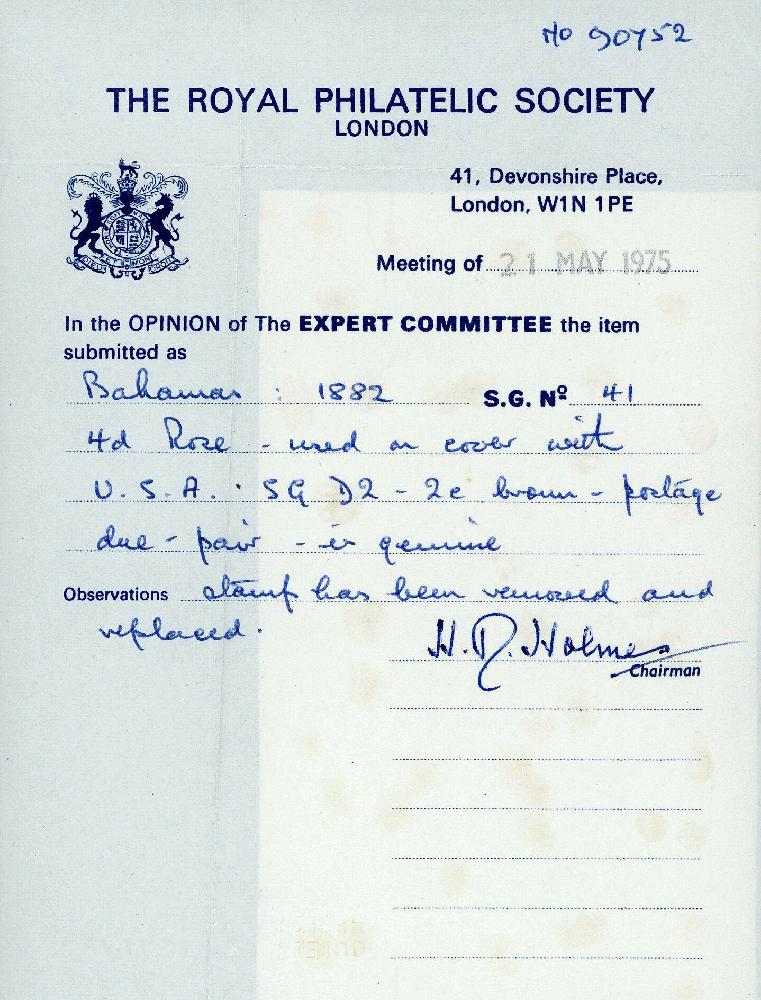 No 90752
THE ROYAL PHILATELIC SOCIETY
LONDON
41, Devonshire Place,
London, W1N 1PE
Meeting of 21 MAY 1975
In the OPINION of The EXPERT COMMITTEE the item
submitted as
Bahamas : 1882 S.G. Nº 41
4d Rose - used on cover with
U.S.A. SG D2 - 2c brown - postage
due - pair - is genuine
Observations stamp has been removed and
replaced.
H. R. Holmes
Chairman